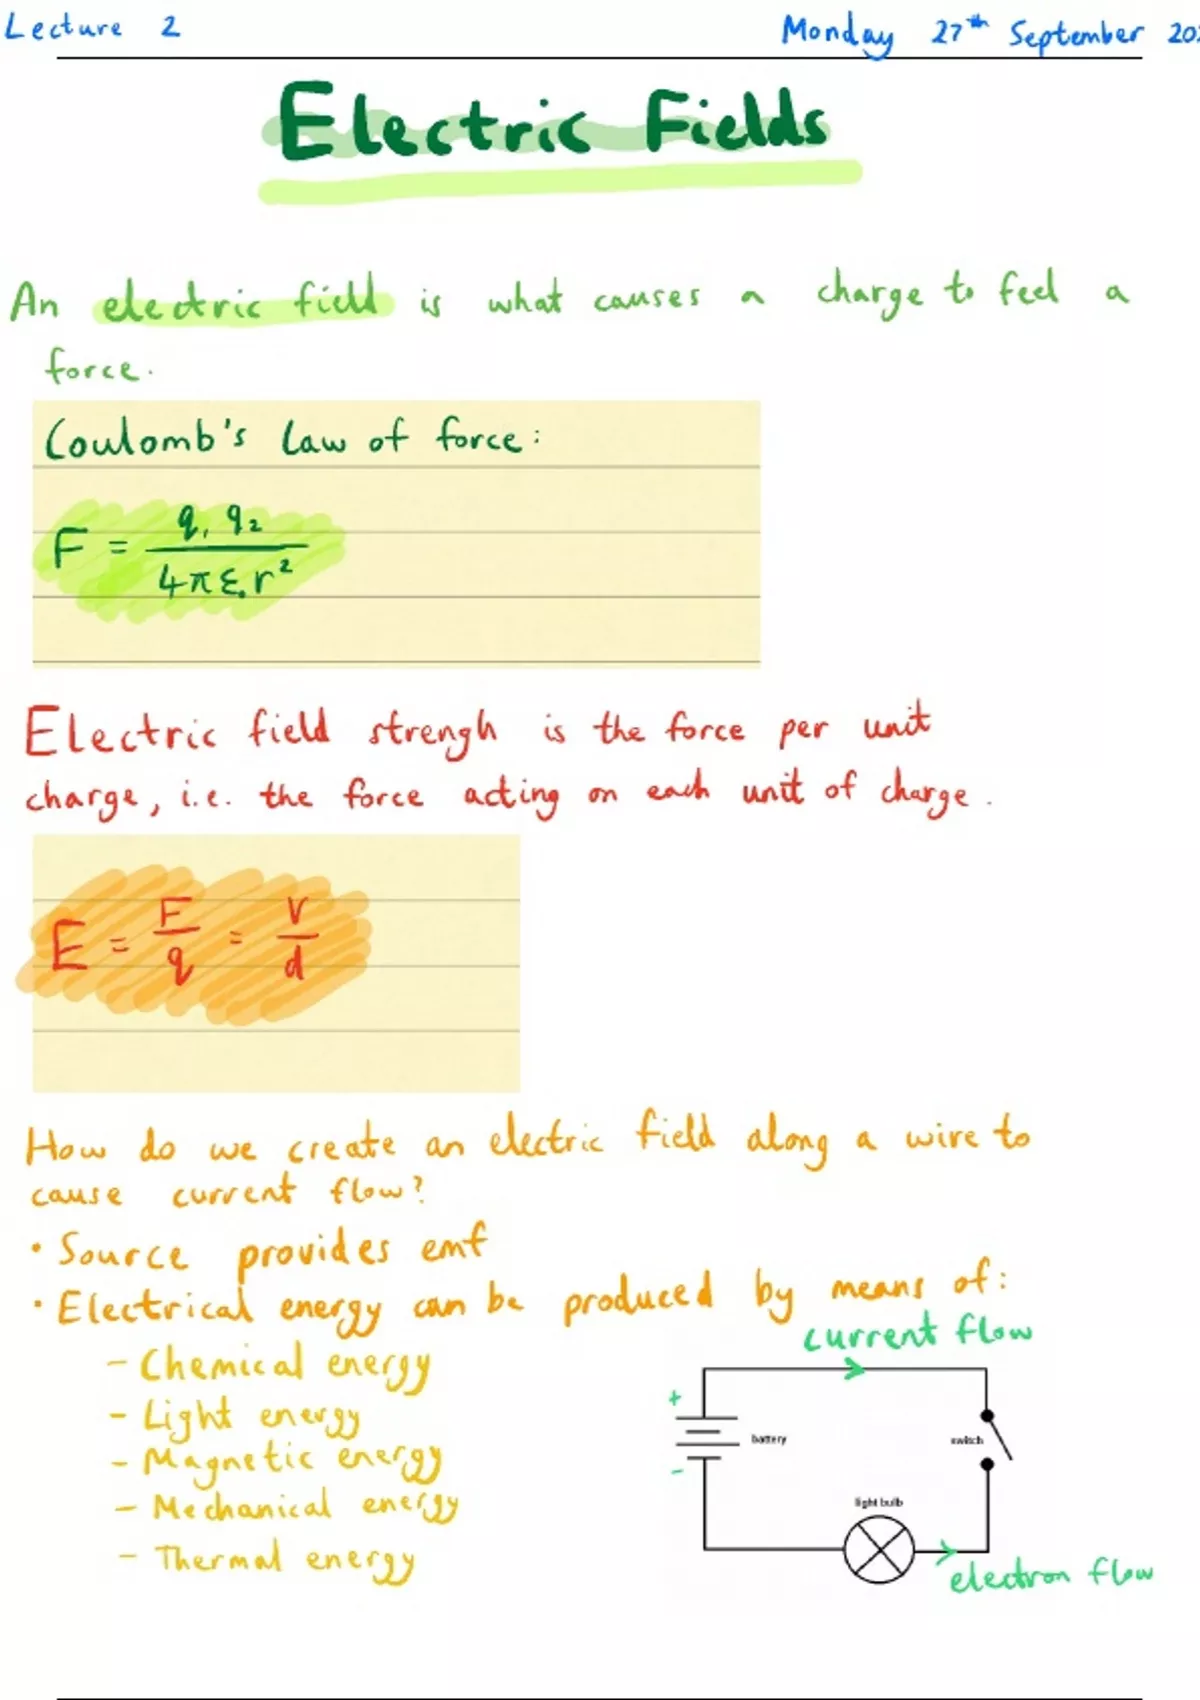 Lecture 2
Monday 27th September
Electric Fields
An electric field is what causes a charge to feel a
force.
Coulomb's Law of force:
F = q₁ q₂ / 4πε₀r²
Electric field strengh is the force per unit
charge, i.e. the force acting on each unit of charge.
E = F/q = V/d
How do we create an electric field along a wire to
cause current flow?
• Source provides emf
• Electrical energy can be produced by means of:
- Chemical energy
- Light energy
- Magnetic energy
- Mechanical energy
- Thermal energy
current flow
+
battery
switch
-
light bulb
electron flow